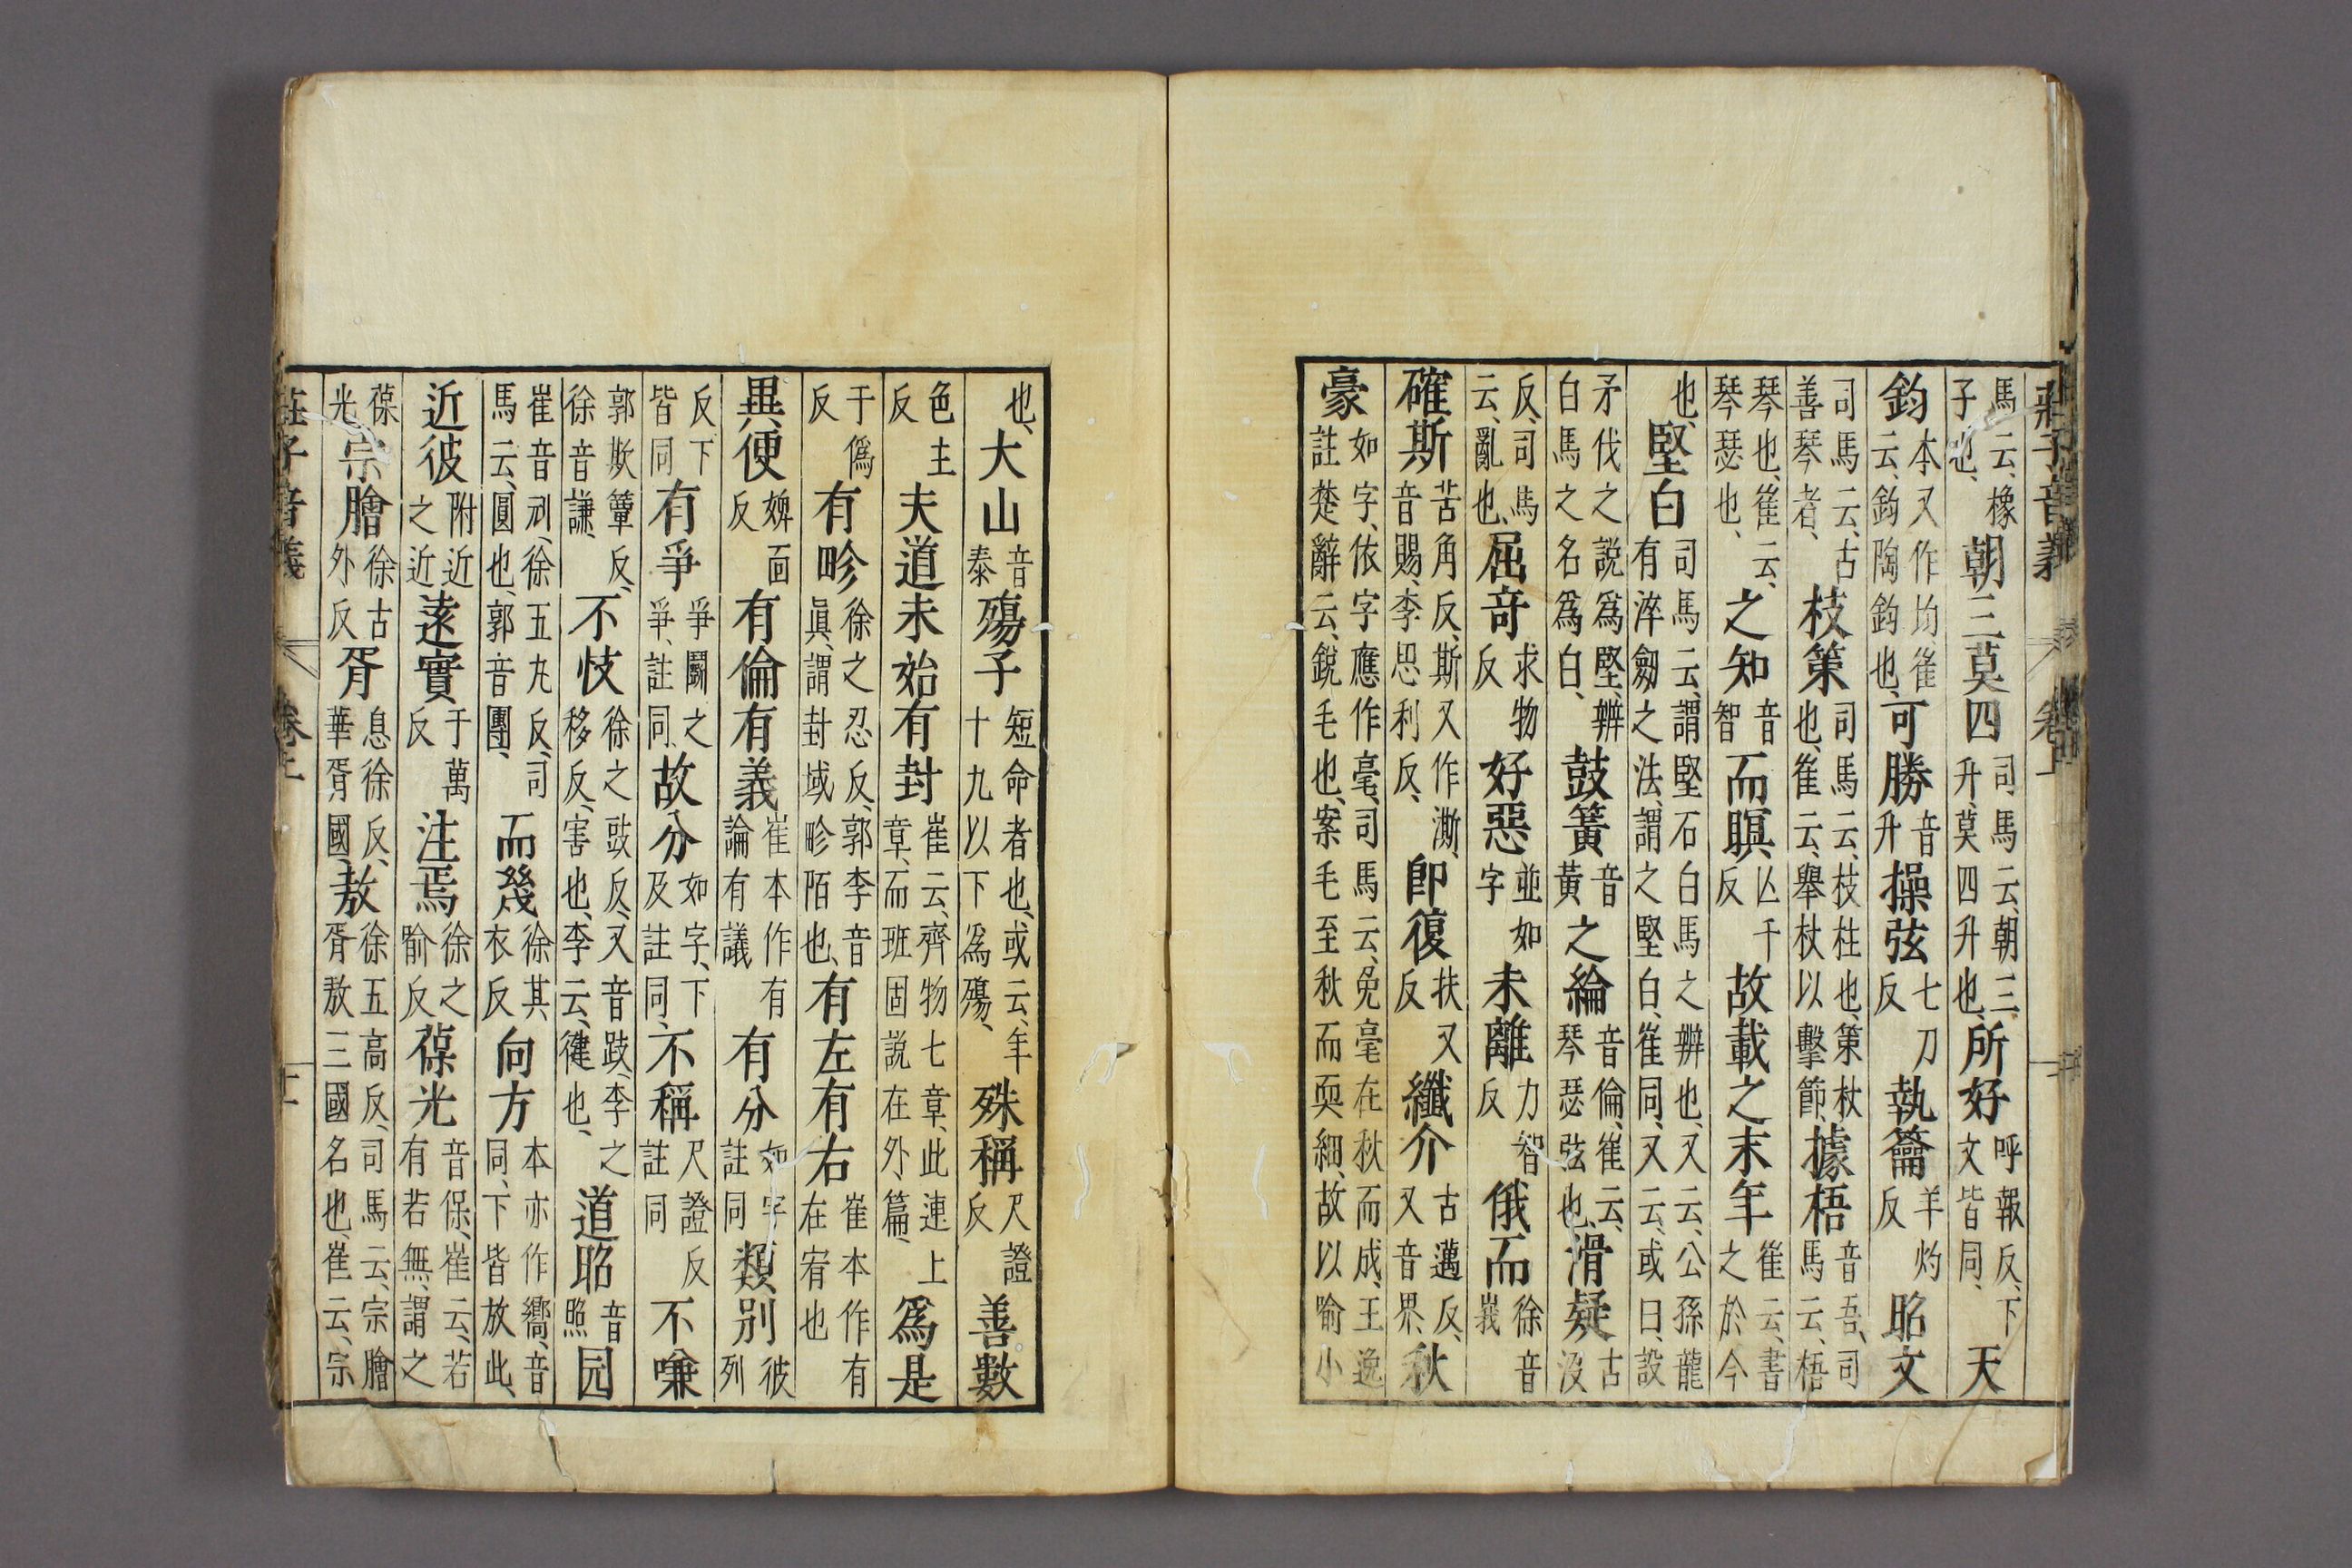 莊子音義 卷上
馬云、橡子也、朝三莫四司馬云、朝三升、莫四升也、所好呼報反、下文皆同、天
鈞本又作均、崔云、鈞、陶鈞也、可勝音升操弦七刀反執籥羊灼反昭文
司馬云、古善琴者、枝策司馬云、枝柱也、策杖也、崔云、舉杖以擊節、據梧音吾、司馬云、梧
琴也、崔云、琴瑟也、之知音智而瞑亾千反故載之末年崔云、書之於今
也、堅白司馬云、謂堅石白馬之辨也、又云、公孫龍有淬劒之法、謂之堅白、崔同、又云、或曰、設
矛伐之說爲堅、辨白馬之名爲白、鼓簧音黃之綸音倫、崔云、琴瑟弦也、滑疑古沒
反、司馬云、亂也、屈竒求物反好惡並如字未離力智反俄而徐音峩
確斯苦角反、斯又作澌、音賜、李思利反、卽復扶又反纖介古邁反、又音界、秋
豪如字、依字應作毫、司馬云、兔毫在秋而成、王逸註楚辭云、銳毛也、案毛至秋而耎細、故以喻小
也、大山音泰殤子短命者也、或云、年十九以下爲殤、殊稱尺證反善數
色主反夫道未始有封崔云、齊物七章、此連上章、而班固說在外篇、爲是
于僞反有畛徐之忍反、郭李音眞、謂封域畛陌也、有左有右崔本作有在宥也
異便婢面反有倫有義崔本作有論有議有分如字註同類別彼列
反下皆同有爭爭鬭之爭、註同、故分如字、下及註同、不稱尺證反註同不嗛
郭欺簟反、徐音謙、不忮徐之豉反、又音跂、李之移反、害也、李云、健也、道昭音照园
崔音刓、徐五丸反、司馬云、圓也、郭音團、而幾徐其衣反向方本亦作嚮、音同、下皆放此、
近彼附近之近遠實于萬反注焉徐之喻反葆光音保、崔云、若有若無、謂之
葆光宗膾徐古外反胥息徐反、華胥國、敖徐五高反、司馬云、宗膾胥敖三國名也、崔云、宗
莊子音義 卷上